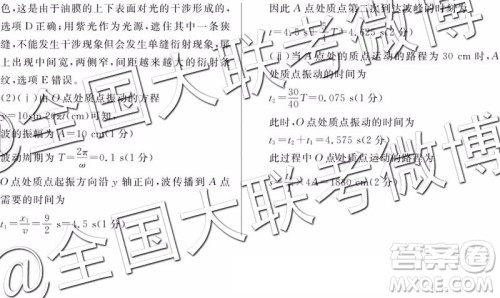 色,这是由于油膜的上下表面对光的干涉形成的,
选项D正确;用紫光作为光源,遮住其中一条狭
缝,不能发生干涉现象但会发生单缝衍射现象,屏
上出现中间宽,两侧窄,间距越来越大的衍射条
纹,选项E错误。
(2)(ⅰ)由O点处质点振动的方程
y=10sin 20πt(cm)可知,
波的振幅为A=10 cm(1分)
波动周期为T=2π/ω=0.1 s(1分)
O点处质点起振方向沿y轴正向,波传播到A点
需要的时间为
t₁=x₁/v=9/2 s=4.5 s(1分)
因此A点处质点第二次到达波峰的时间为
t=4.5 s
=4.625 s(2分)
(ⅱ)当A点处的质点运动的路程为30 cm时,A
处质点振动的时间为
t₂=30/40 T=0.075 s(1分)
此时,O点处质点
t₃=t₂+t₁=4.575 s(2分)
此过程中O点处质点运动的路程为
×4A=1830 cm(2分)
@全国大联考微博
@全国大联考微博
答案圈
MXQE.COM